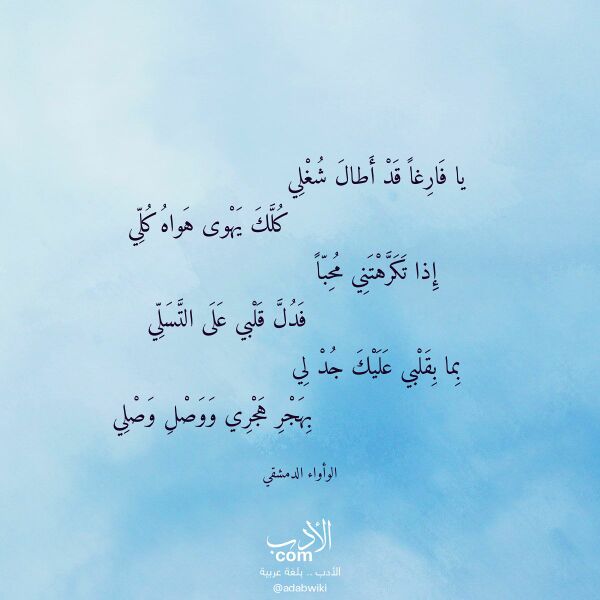 يا فَارِغاً قَدْ أَطالَ شُغْلِي
كُلَّكَ يَهْوى هَواهُ كُلِّي
إِذا تَكَرَّهْتَنِي مُحِبّاً
فَدُلَّ قَلْبي عَلَى التَّسَلِّي
بِما بِقَلْبي عَلَيْكَ جُدْ لِي
بِهَجْرِ هَجْرِي وَوَصْلِ وَصْلِي
الوأواء الدمشقي
الأدب
com
الأدب .. بلغة عربية
@adabwiki